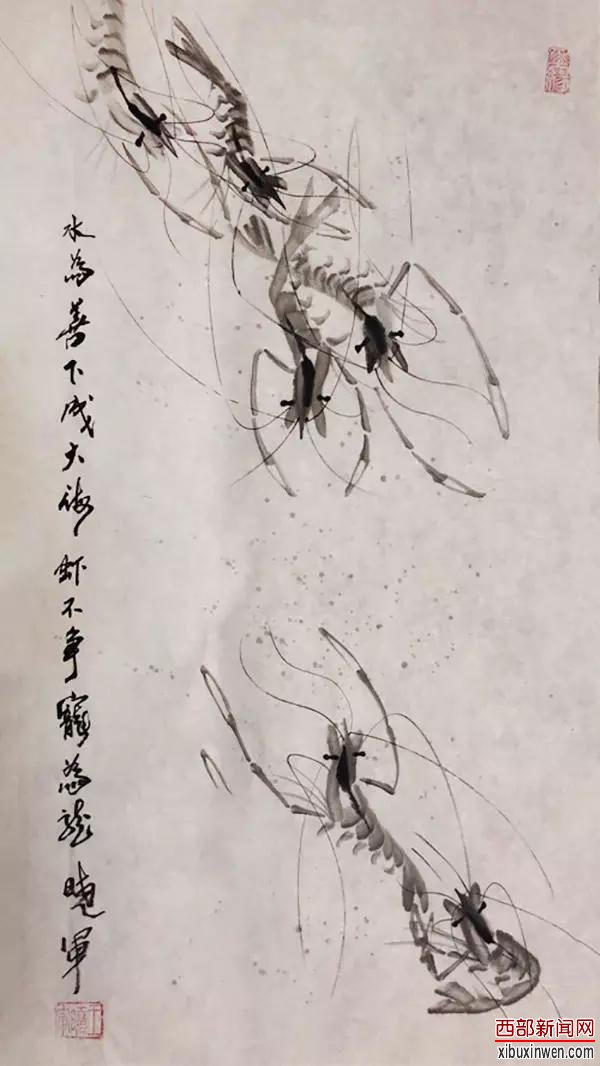 水為善下成大海虾不争寵為龍 曉軍
西部新闻网
xibuxinwen.com